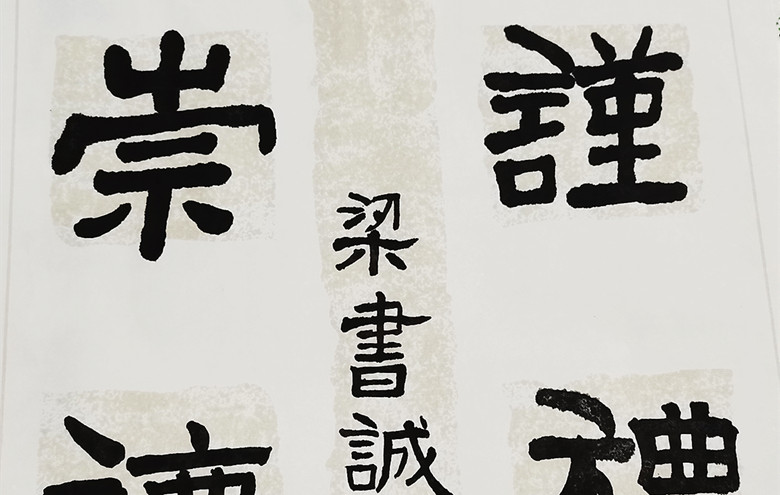 謹禮
梁書誠
崇